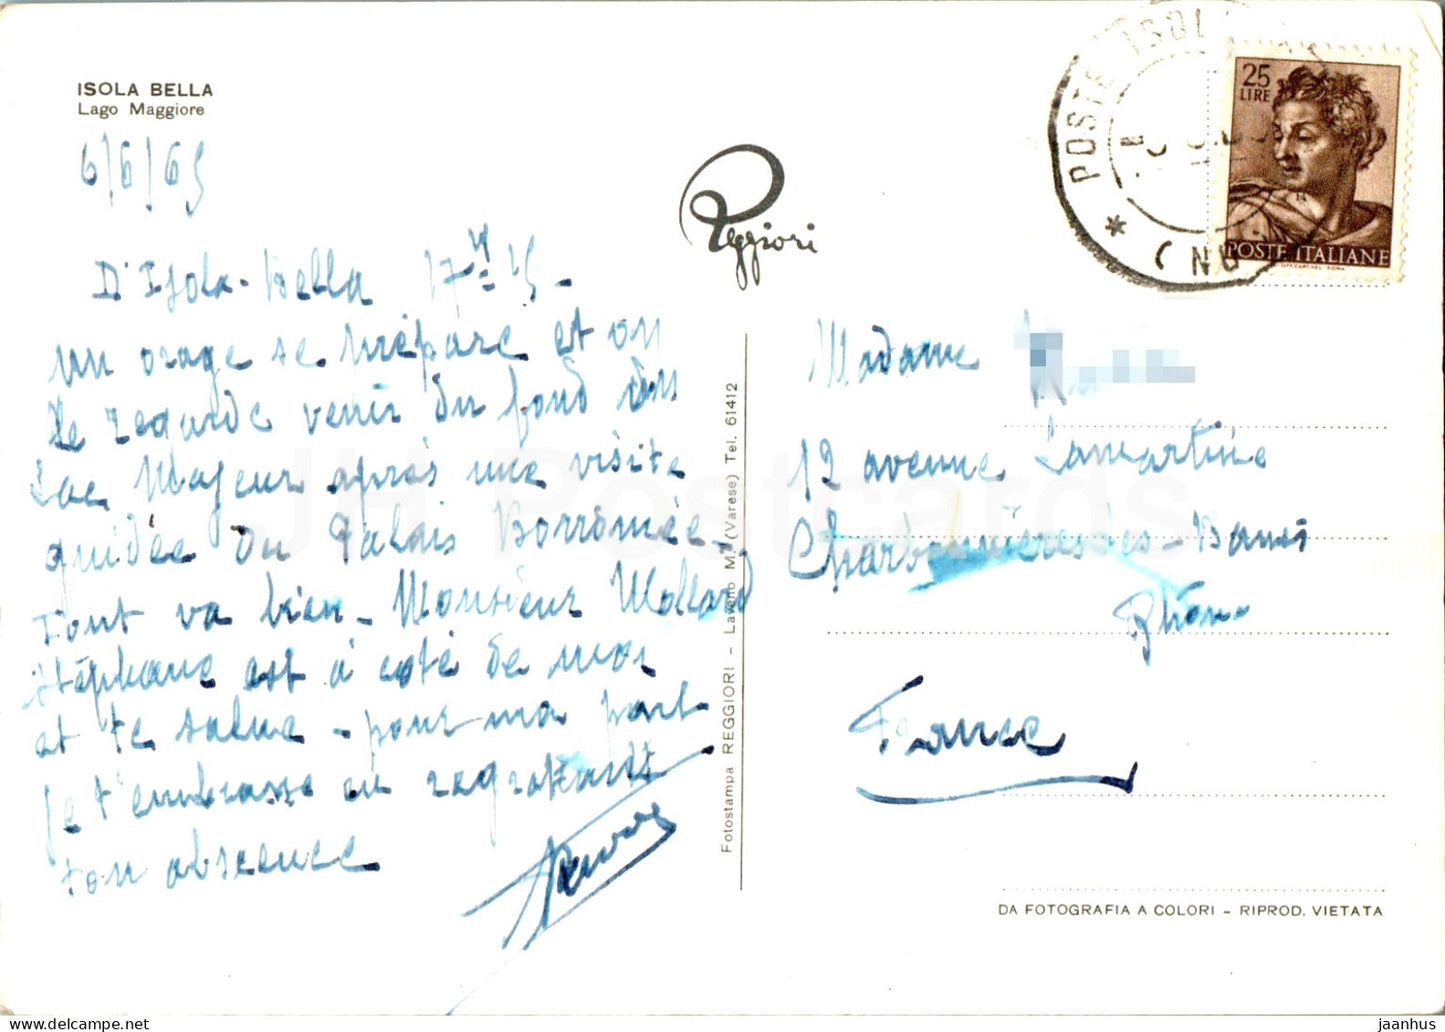 ISOLA BELLA
Lago Maggiore
6/6/65
D'Isola-Bella 17H 15 -
un orage se prépare et on
le regarde venir du fond du
Lac Majeur après une visite
guidée du Palais Borromée.
Tout va bien - Monsieur Mollard
Stéphane est à côté de moi
et te salue - pour ma part
je t'embrasse en regrettant
ton absence
Reggiori
Fotostampa REGGIORI - Laveno M. (Varese) Tel. 61412
POSTE ISOL
(NO
25
LIRE
POSTE ITALIANE
Madame
12 avenue Lamartine
Charbonnières-les-Bains
Rhône
France
DA FOTOGRAFIA A COLORI - RIPROD. VIETATA
JH Postcards
jaanhus
delcampe.net